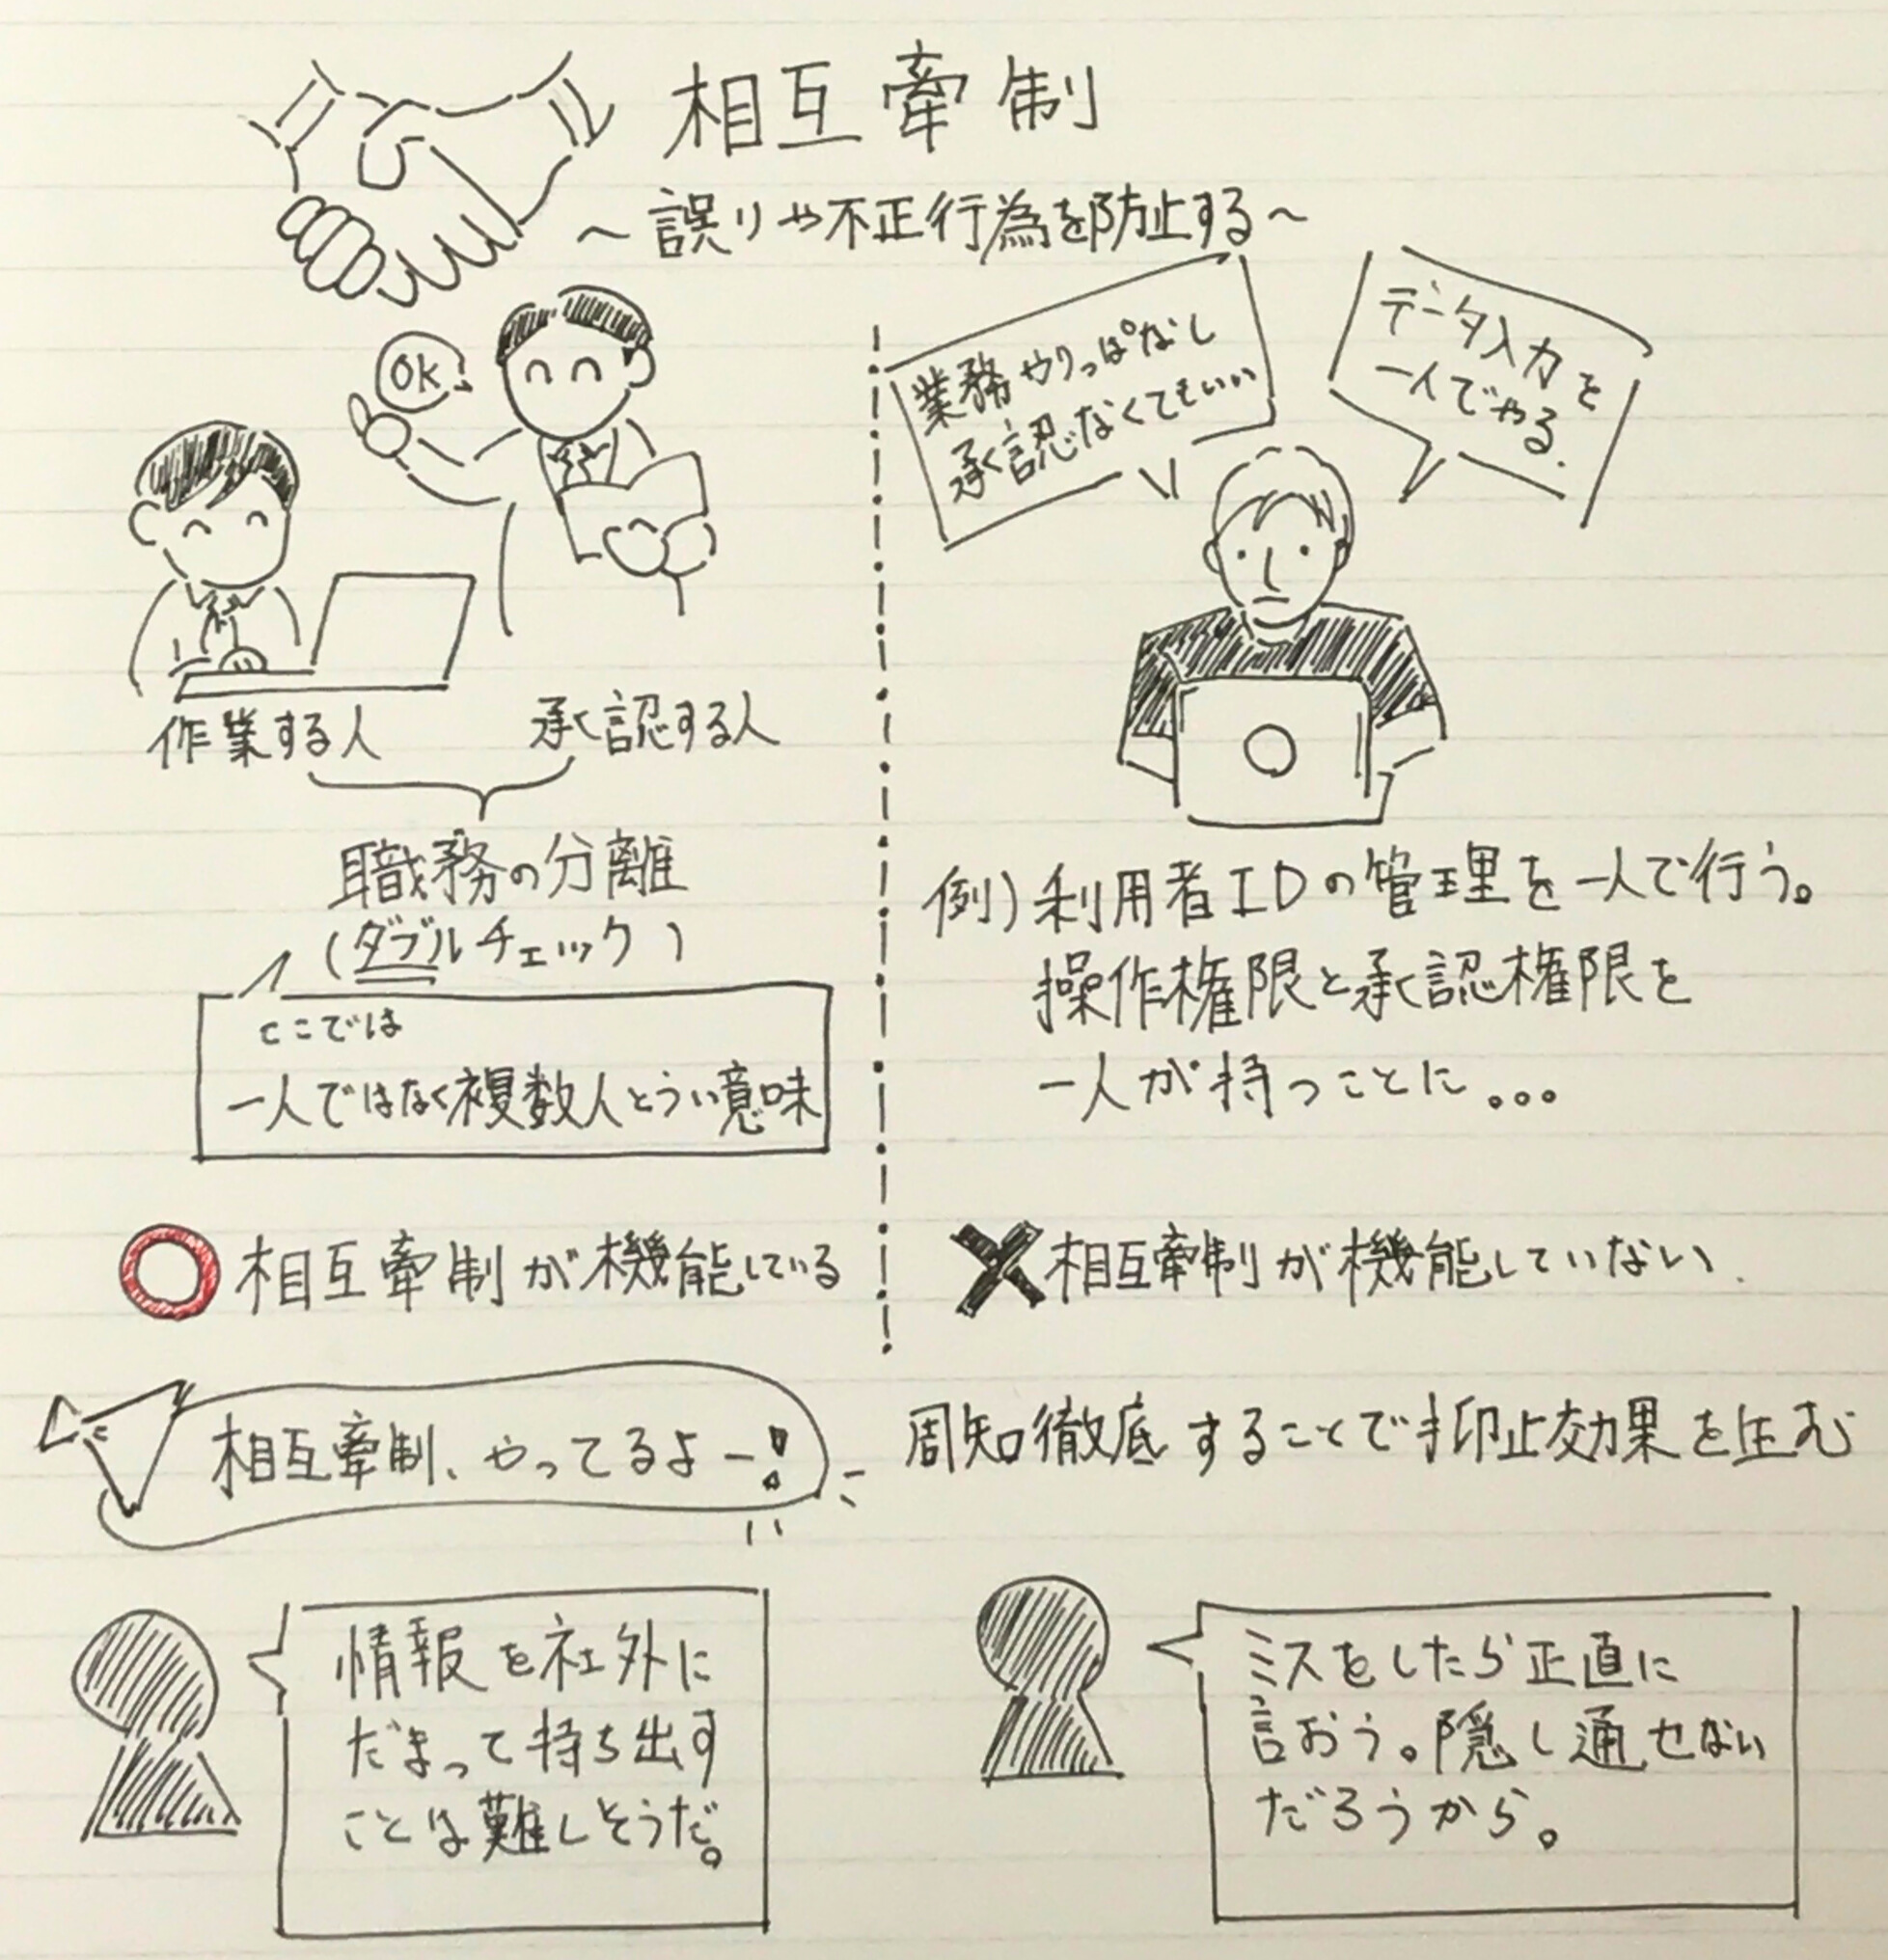 相互牽制
～誤りや不正行為を防止する～
OK
作業する人
承認する人
職務の分離
(ダブルチェック)
ここでは
一人ではなく複数人とうい意味
相互牽制が機能している
業務やりっぱなし
承認なくてもいい
データ入力を
一人でやる.
例)利用者IDの管理を一人で行う。
操作権限と承認権限を
一人が持つことに...
相互牽制が機能していない.
相互牽制、やってるよー!
周知徹底することで抑止効果を生む
情報を社外に
だまって持ち出す
ことは難しそうだ。
ミスをしたら正直に
言おう。隠し通せない
だろうから。